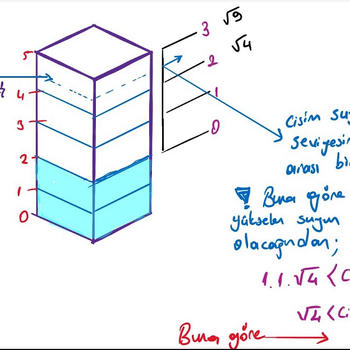 3 √9
√4
5
4
3
2
1
0
2
1
0
Cisim suy
seviyesin
arası bir
Buna göre
yükselen suyun
olacağından;
1.1.√4 < C
√4 < Ci
Buna göre